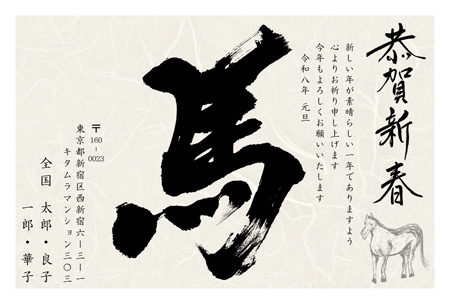 恭賀新春
新しい年が素晴らしい一年でありますよう
心よりお祈り申し上げます
今年もよろしくお願いいたします
令和八年 元旦
馬
〒160-0023
東京都新宿区西新宿六ー三ー一
キタムラマンション三〇三
全国 太郎・良子
一郎・華子